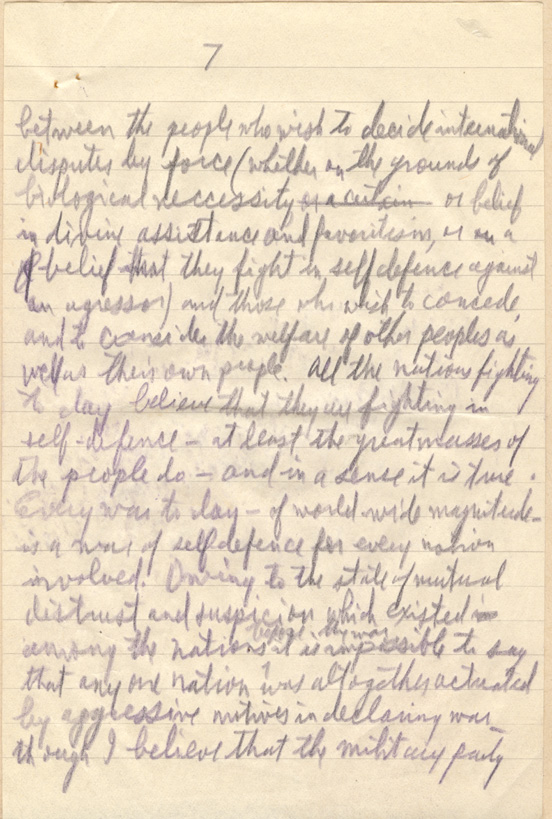 7
between the people who wish to decide international
disputes by force (whether on the grounds of
biological neccessity or a certain or belief
in divine assistance and favoritism, or on a
belief that they fight in self defence against
an agressor) and those who wish to concede,
and to consider the welfare of other peoples as
well as their own people. All the nations fighting
to day believe that they are fighting in
self-defence – at least the great masses of
the people do – and in a sense it is true.
Every war to day – of world-wide magnitude –
is a war of self defence for every nation
involved. Owing to the state of mutual
distrust and suspicion which existed in
before the war
among the nations it is impossible to say
that any one nation was altogether actuated
by aggressive motives in declaring war –
though I believe that the military party